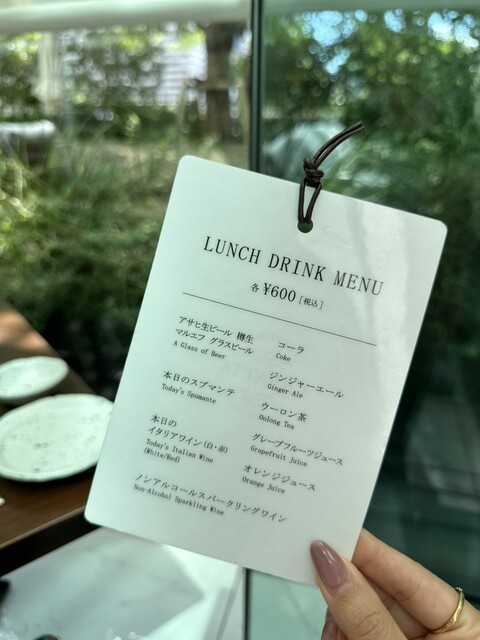 LUNCH DRINK MENU
各 ¥600 [税込]
アサヒ生ビール 樽生
マルエフ グラスビール
A Glass of Beer
本日のスプマンテ
Today's Spumante
本日の
イタリアワイン(白・赤)
Today's Italian Wine
(White/Red)
ノンアルコールスパークリングワイン
Non-Alcohol Sparkling Wine
コーラ
Coke
ジンジャーエール
Ginger Ale
ウーロン茶
Oolong Tea
グレープフルーツジュース
Grapefruit Juice
オレンジジュース
Orange Juice